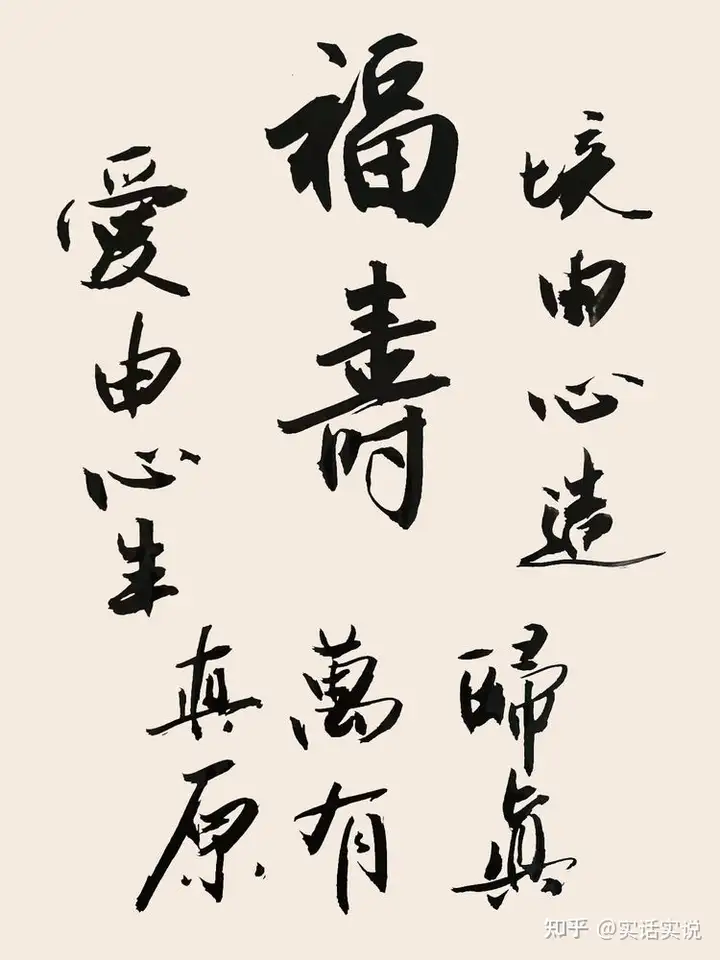 境由心造
福壽
愛由心生
歸眞
萬有
真原
知乎 @实话实说